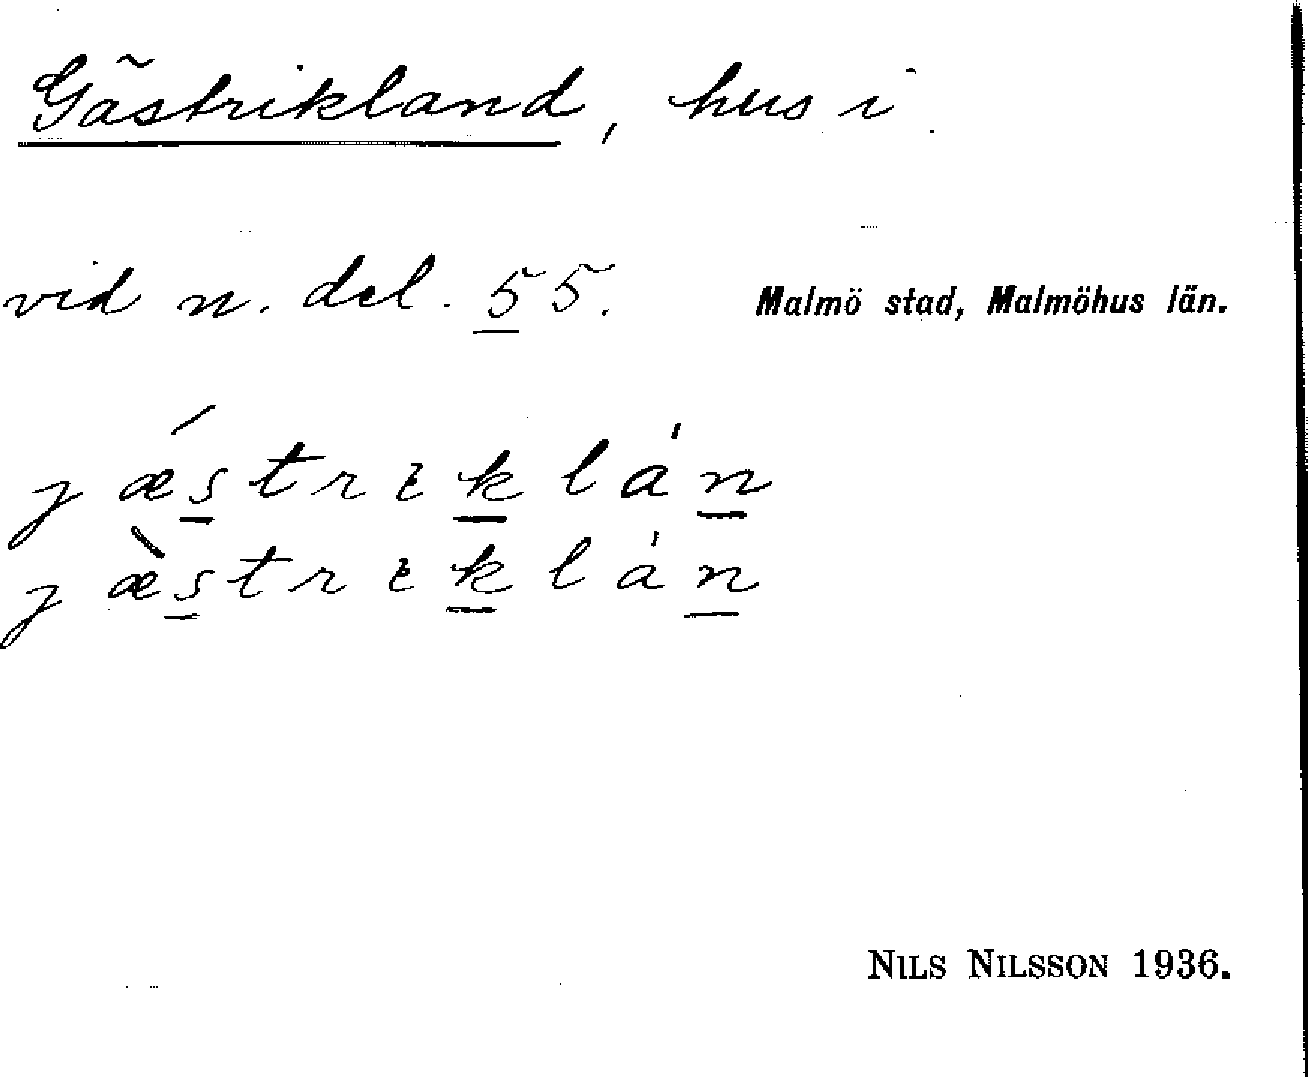 Gästrikland, hus i
vid n. del. 55. Malmö stad, Malmöhus län.
jǽstrɩklán
jæ̀strɩklán
NILS NILSSON 1936.